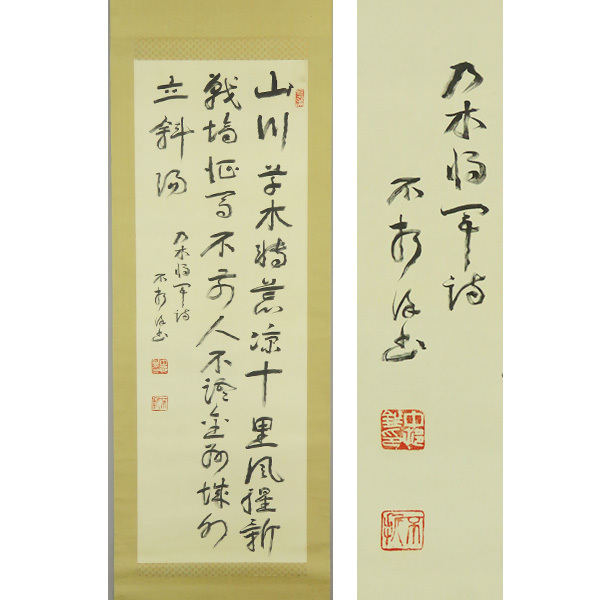 山川草木轉荒涼十里風腥新
戰場征馬不前人不語金州城外
立斜陽
乃木将軍詩
不折書
不折
乃木将軍詩
不折書
不折